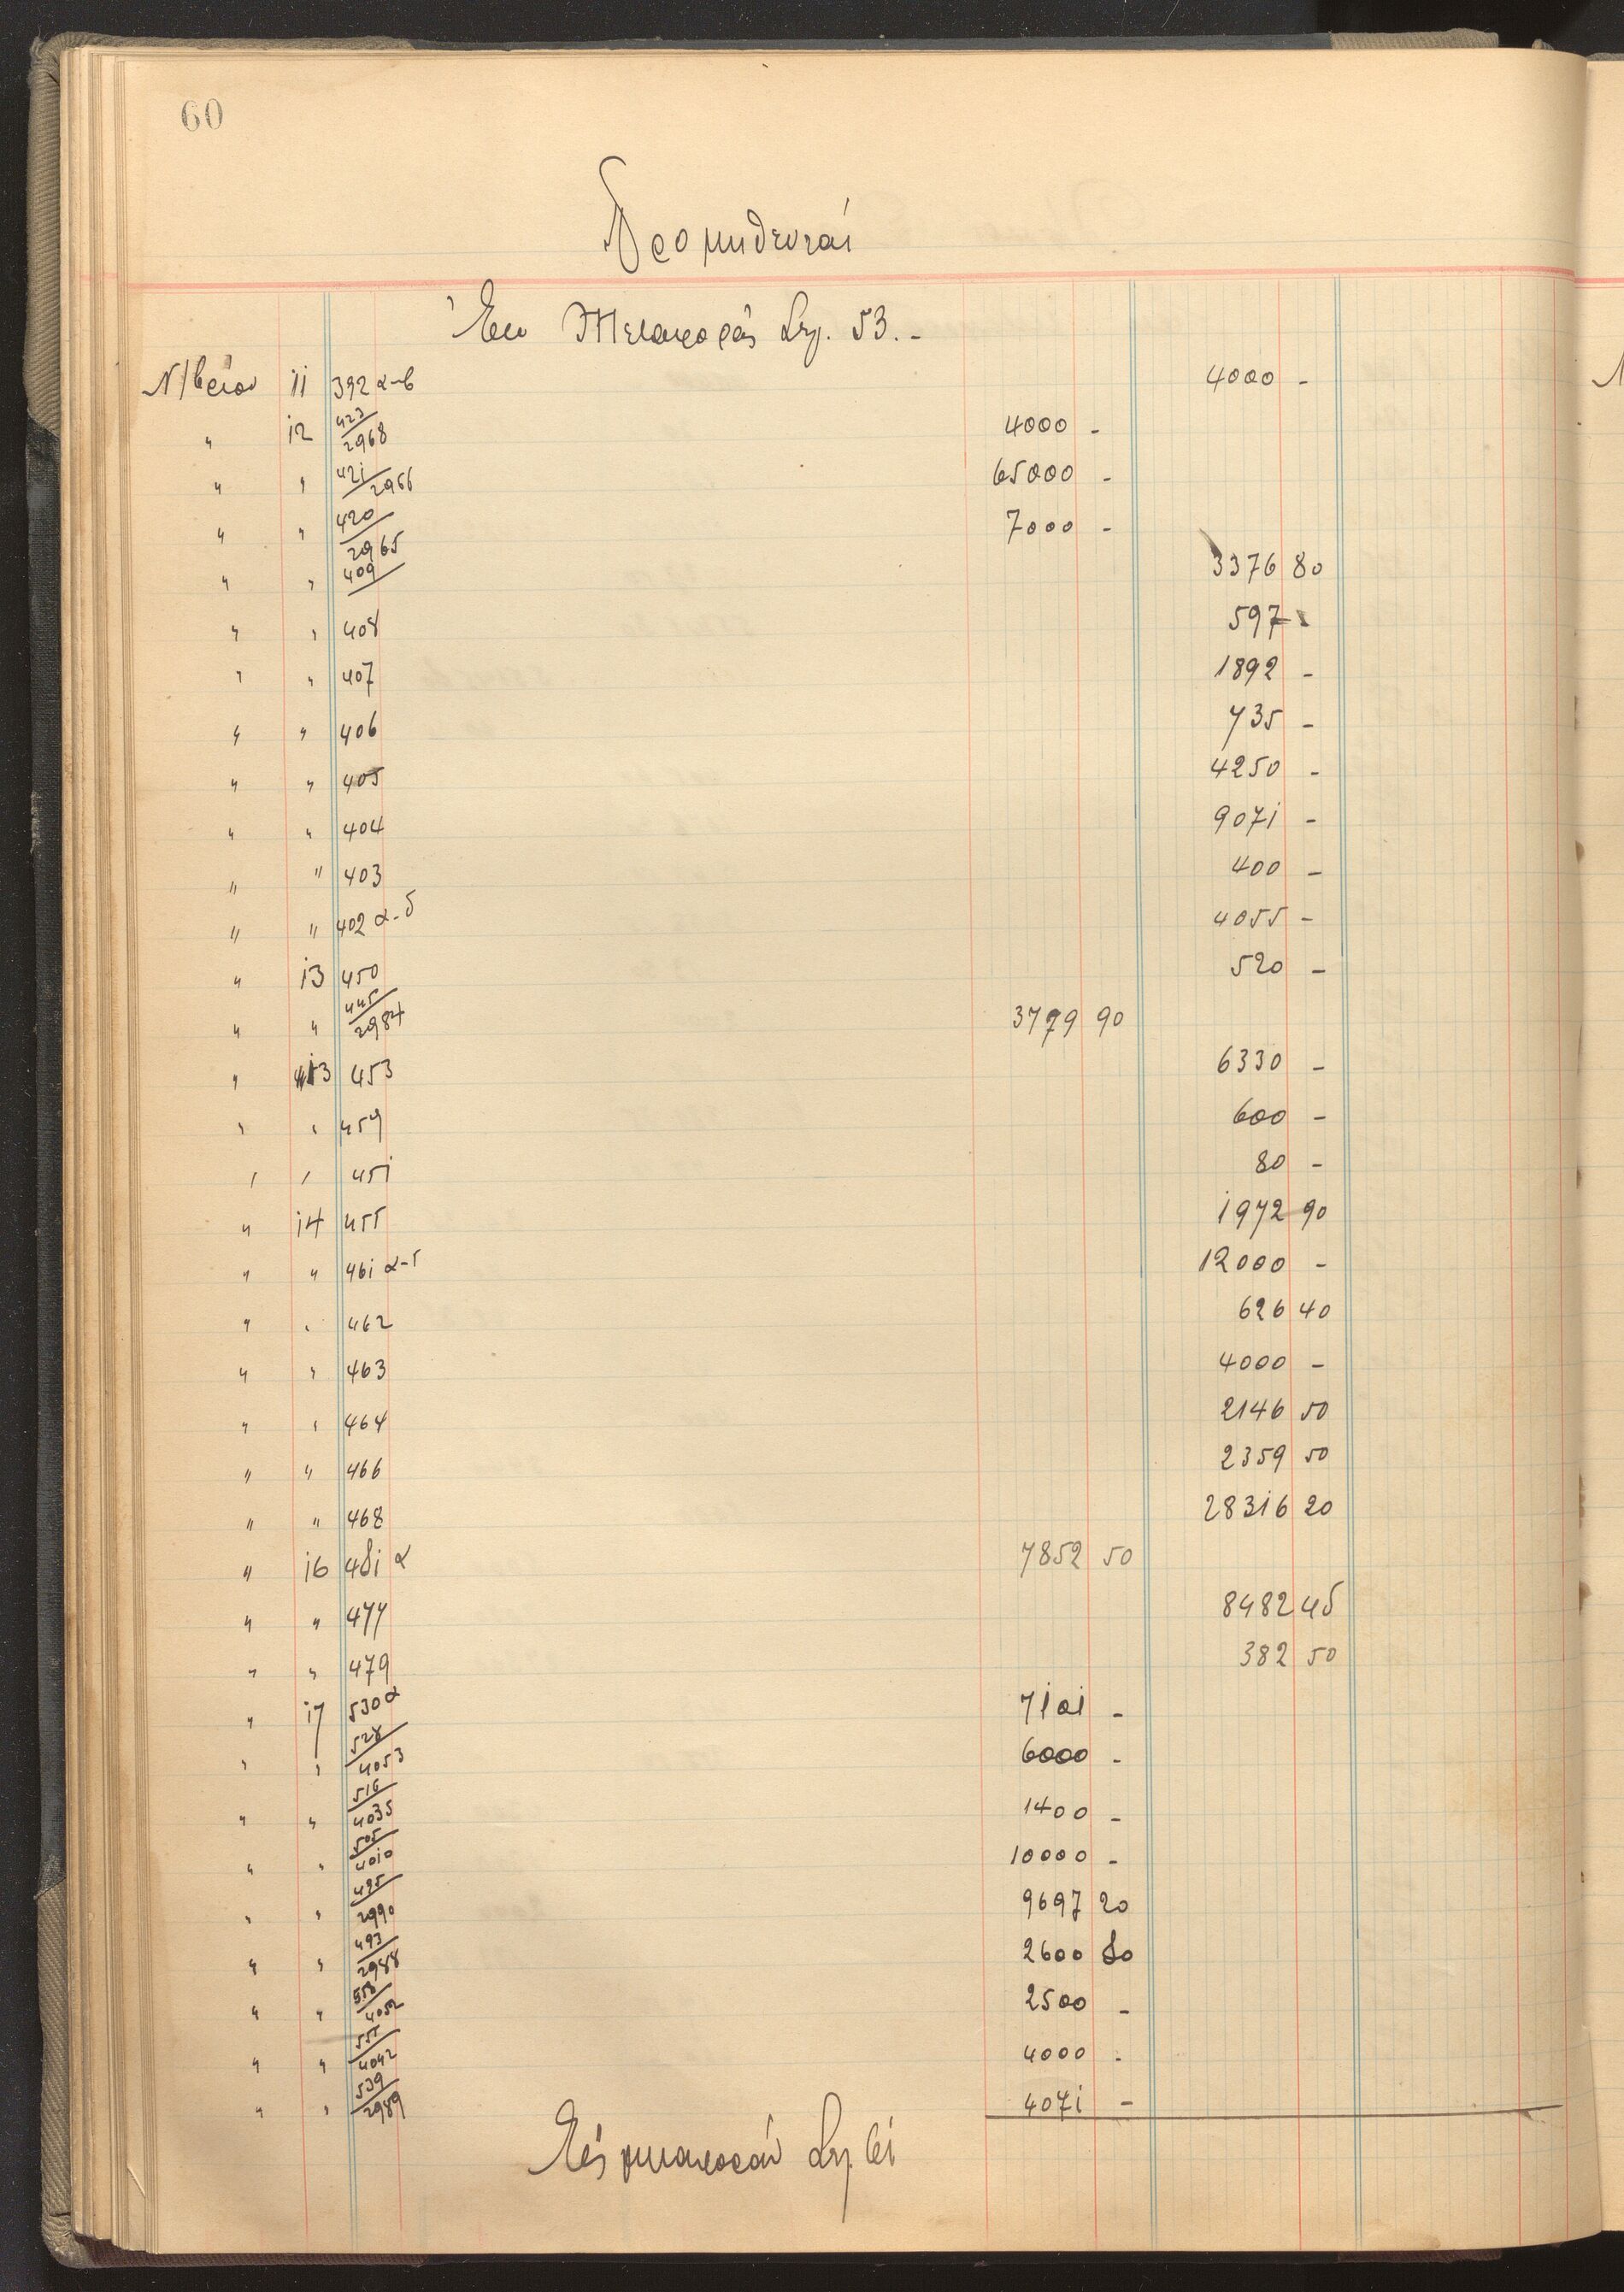 60
Προμηθευταί
Ἐκ Μεταφορᾶς Σελ. 53.-
Ν/βρίου 11 392 α-β 4000 -
" 12 423/2968 4000 -
" " 421/2966 65000 -
" " 420/2965 7000 -
" " 409 3376 80
" " 408 597 -
" " 407 1892 -
" " 406 735 -
" " 405 4250 -
" " 404 9071 -
" " 403 400 -
" " 402 α-δ 4055 -
" 13 450 520 -
" " 445/2984 3779 90
" 13 453 6330 -
" " 459 600 -
" " 451 80 -
" 14 455 1972 90
" " 461 α-γ 12000 -
" " 462 626 40
" " 463 4000 -
" " 464 2146 50
" " 466 2359 50
" " 468 28316 20
" 16 481 α 7852 50
" " 477 8482 45
" " 479 382 50
" 17 530 α 7101 -
" " 528/4053 6000 -
" " 516/4035 1400 -
" " 505/4010 10000 -
" " 495/2990 9697 20
" " 493/2988 2600 80
" " 4052 2500 -
" " 4042 4000 -
" " 539/2989 4071 -
Εἰς μεταφοράν Σελ. 61